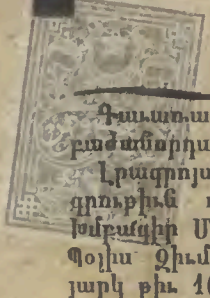 Գաւառա
բաժանորդա
Լրագրոյս
գրութիւն
խմբագիր Մ
Պօլիս Չիւմ
յարկ թիւ 1